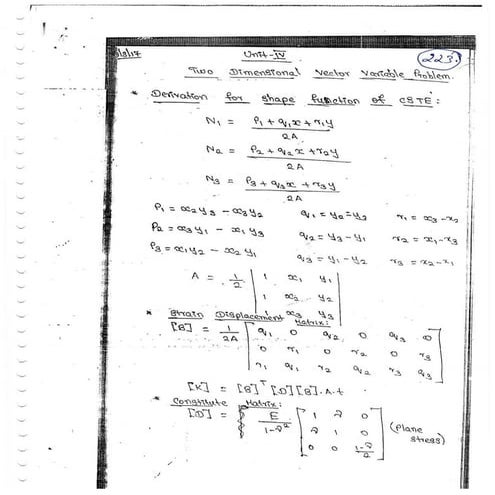 /3/17 Unit-IV 223.
Two Dimensional Vector Variable Problem.
* Derivation for shape function of CSTE:
N₁ = P₁ + q₁x + r₁y / 2A
N₂ = P₂ + q₂x + r₂y / 2A
N₃ = P₃ + q₃x + r₃y / 2A
P₁ = x₂y₃ - x₃y₂ q₁ = y₂ - y₃ r₁ = x₃ - x₂
P₂ = x₃y₁ - x₁y₃ q₂ = y₃ - y₁ r₂ = x₁ - x₃
P₃ = x₁y₂ - x₂y₁ q₃ = y₁ - y₂ r₃ = x₂ - x₁
A = 1/2 | 1 x₁ y₁
1 x₂ y₂
1 x₃ y₃ |
* Strain Displacement Matrix:
[B] = 1/2A [ q₁ 0 q₂ 0 q₃ 0
0 r₁ 0 r₂ 0 r₃
r₁ q₁ r₂ q₂ r₃ q₃ ]
[K] = [B]ᵀ [D] [B] . A . t
* Constitute Matrix:
[D] = E / 1-ν² [ 1 ν 0
ν 1 0
0 0 1-ν/2 ] (Plane stress)